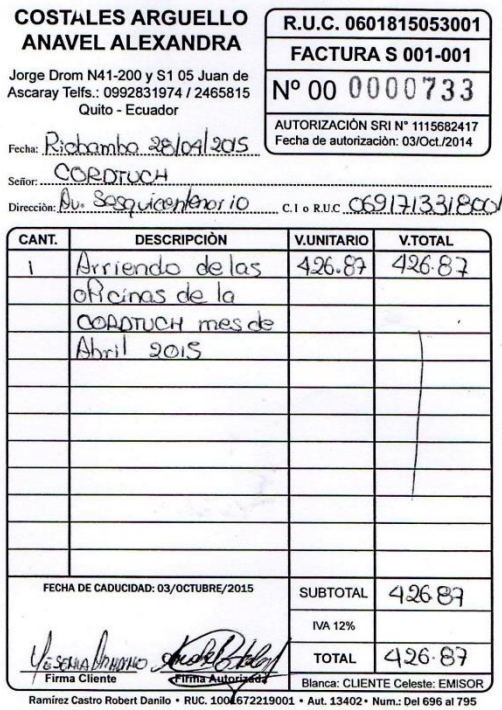 COSTALES ARGUELLO
ANAVEL ALEXANDRA
Jorge Drom N41-200 y S1 05 Juan de
Ascaray Telfs.: 0992831974 / 2465815
Quito - Ecuador
R.U.C. 0601815053001
FACTURA S 001-001
Nº 00 0000733
AUTORIZACIÓN SRI Nº 1115682417
Fecha de autorización: 03/Oct./2014
Fecha: Riobamba 28/04/2015
Señor: CORDTUCH
Dirección: Av. Sesquicentenorio C.I o R.U.C 0691713318001
CANT. DESCRIPCIÒN V.UNITARIO V.TOTAL
1 Arriendo de las 426.87 426.87
oficinas de la
CORDTUCH mes de
Abril 2015
FECHA DE CADUCIDAD: 03/OCTUBRE/2015
SUBTOTAL 426.87
IVA 12%
TOTAL 426.87
Firma Cliente Firma Autorizada
Blanca: CLIENTE Celeste: EMISOR
Ramírez Castro Robert Danilo • RUC. 1001672219001 • Aut. 13402 • Num.: Del 696 al 795